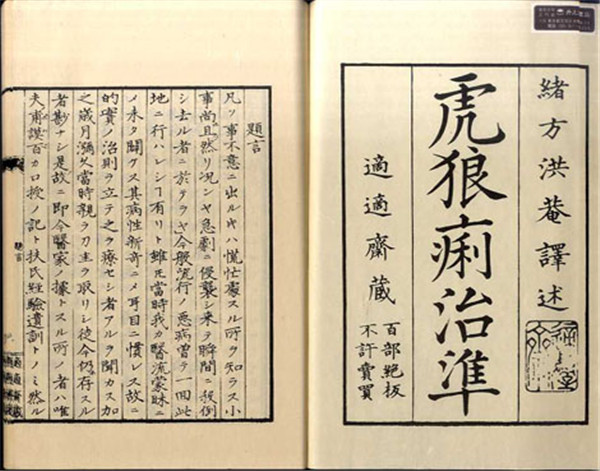 緒方洪菴譯述
虎狼痢治準
適適齋蔵
百部絶板
不許賣買
題言
凡ソ事不意ニ出ルヤハ慌忙處スル所ヲ知ラス小
事尚且然リ况ンヤ急劇ニ侵襲シ来テ瞬間ニ殺倒
シ去ル者ニ於テヲヤ今般流行ノ悪病曽テ一回此
地ニ行ハレシ有リト雖𪜈當時我カ醫流蒙昧ニ
ノ未タ開ケス其病性新奇ニ耳目ニ慣レス故ニ
的實ノ治則ヲ立テ之ヲ療セシ者アルヲ聞カス加
之歳月瀰久當時親ラ刀圭ヲ取リシ徒今仍存スル
者尠ナシ是故ニ即今醫家ノ據トスル所ノ者ハ唯
夫甫謨百カ口授ノ記ト扶氏經驗遺訓トノミ然ル
題言